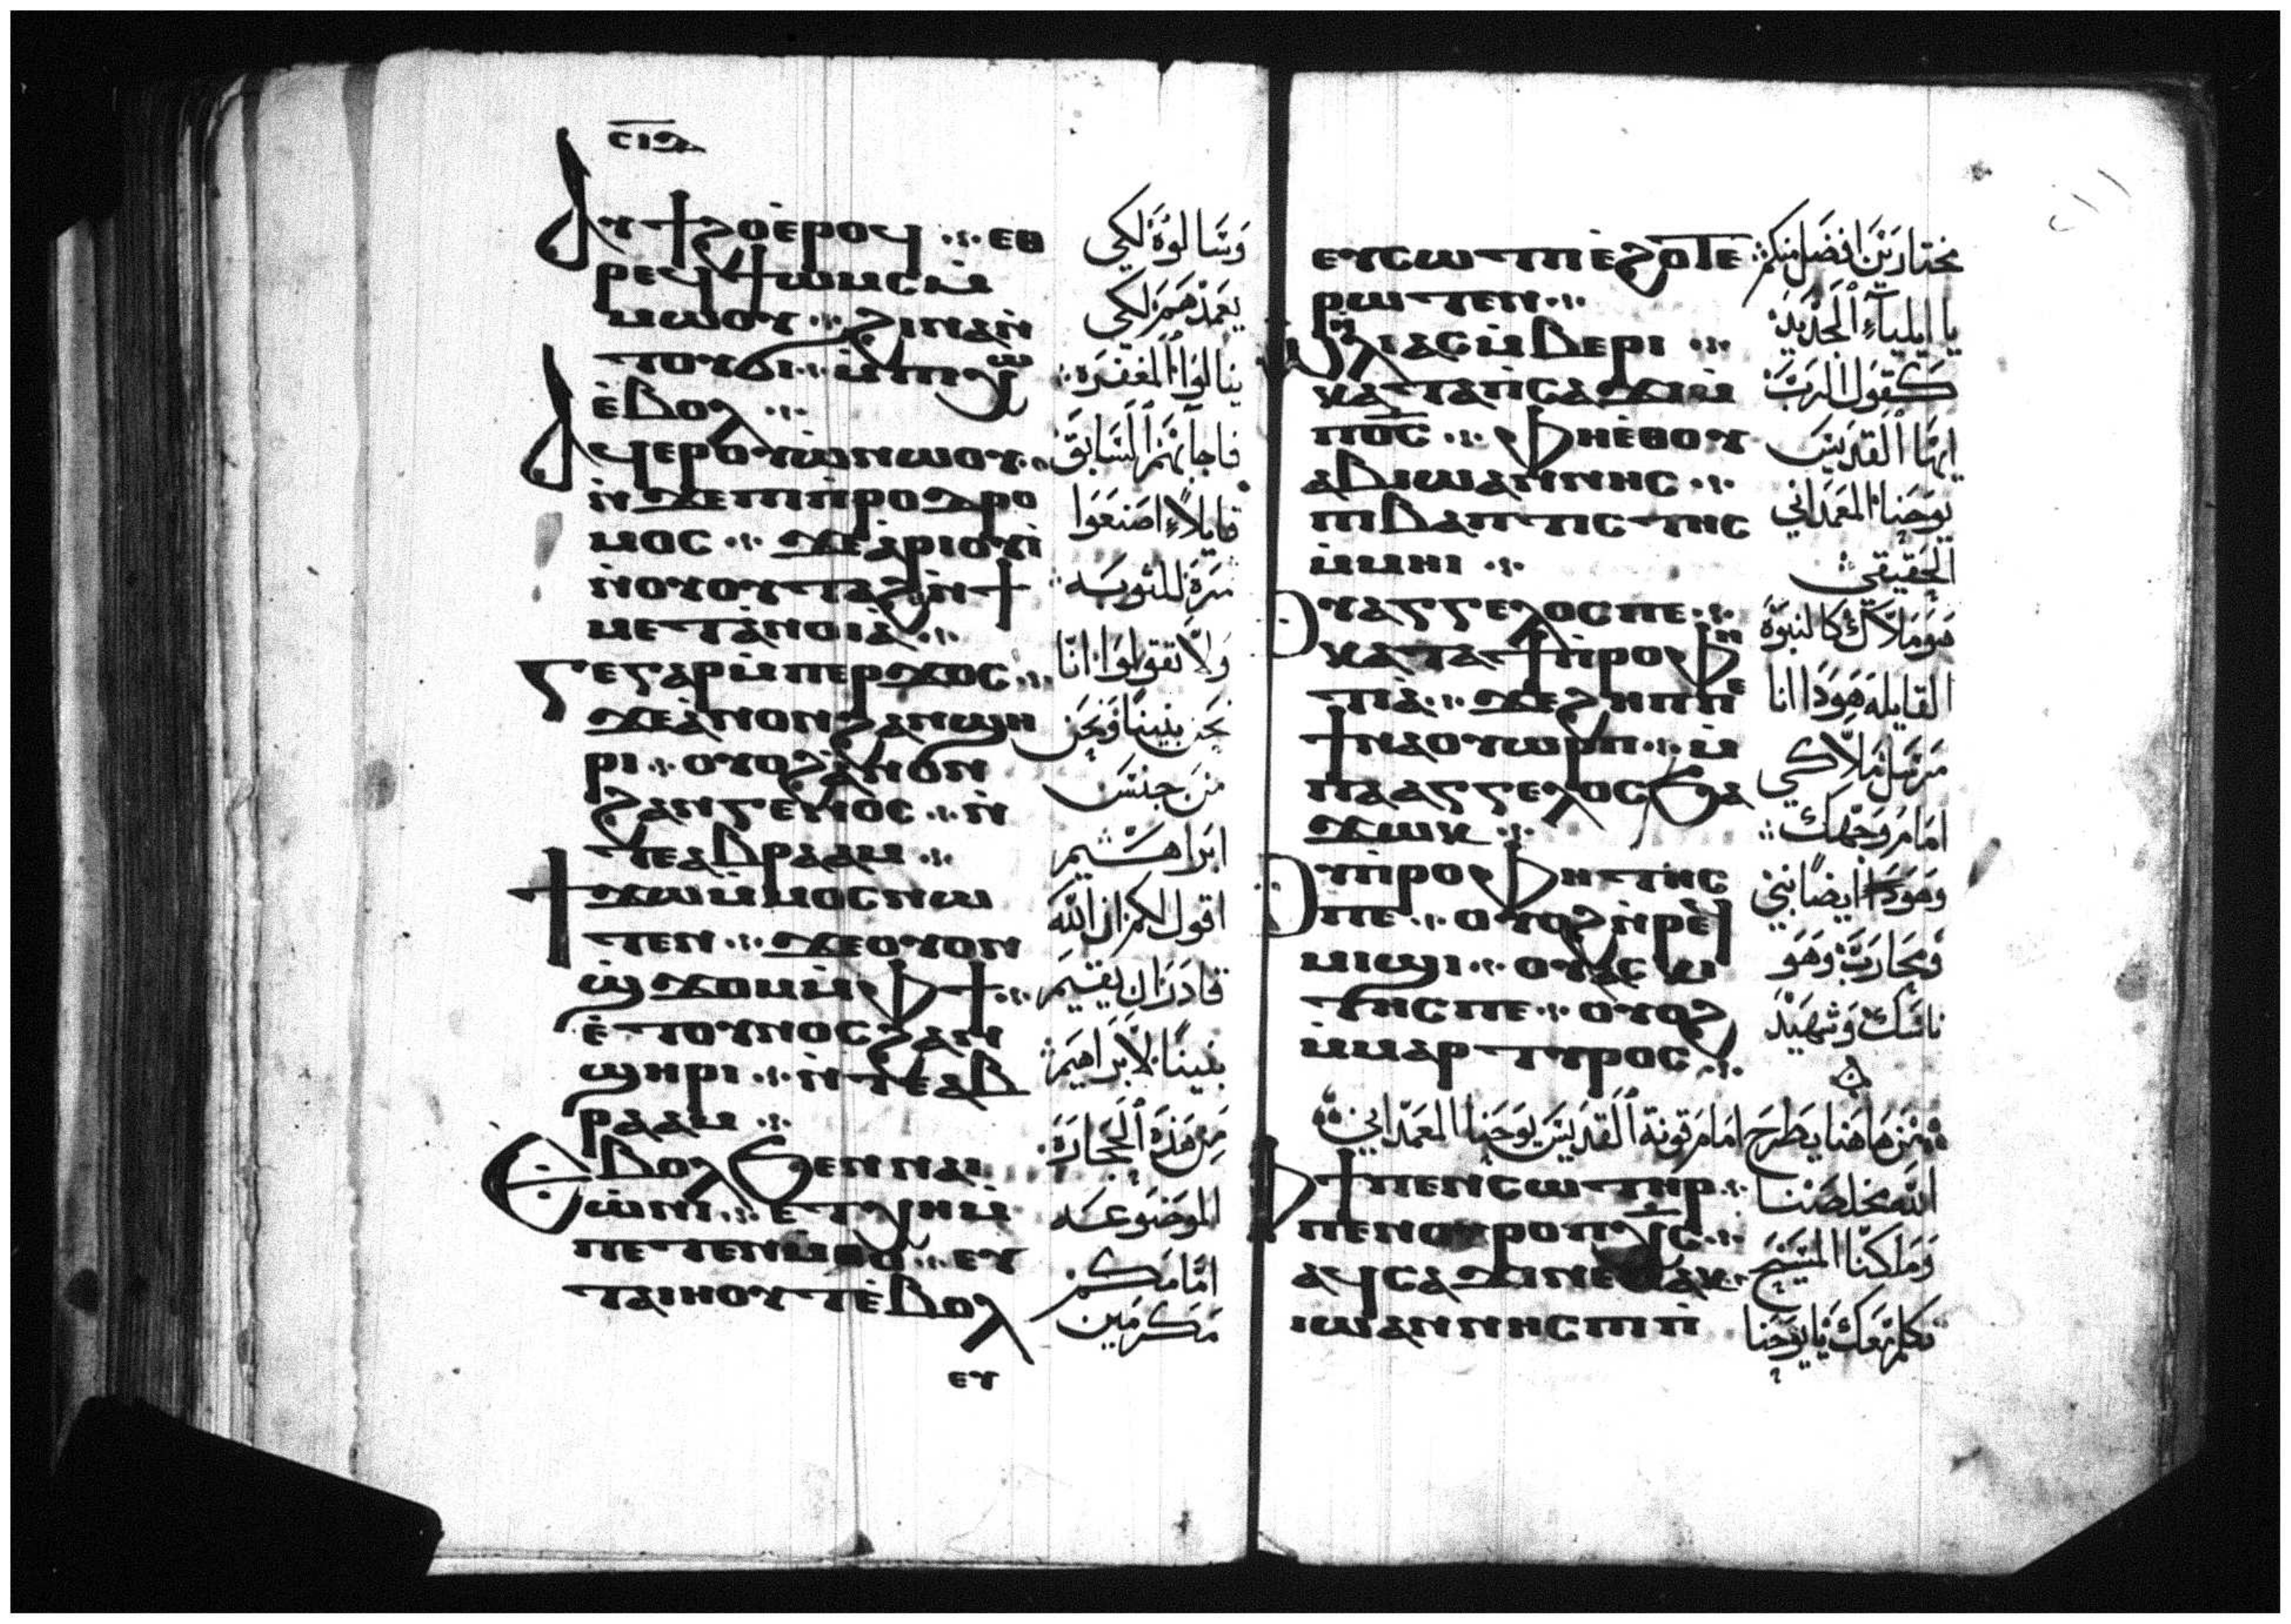 ⲥⲓⲇ
ⲁⲩϯϩⲟ ⲉ̀ⲣⲟϥ ⁘ ⲉⲑ
ⲣⲉϥϯⲱⲙⲥ ⲙ̀
ⲙⲱⲟⲩ ⁘ ϩⲓⲛⲁ ⲛ̀
ⲧⲟⲩϭⲓ ⁘ ⲙ̀ⲡⲭⲱ
ⲉ̀ⲃⲟⲗ ⁘
ⲁϥⲉⲣⲟⲩⲱ̀ ⲛⲱⲟⲩ ⁘
ⲛ̀ϫⲉ ⲡⲓⲡ̀ⲣⲟⲇⲣⲟ
ⲙⲟⲥ ⁘ ϫⲉ ⲁ̀ⲣⲓⲟⲩⲓ̀
ⲛ̀ⲟⲩⲟⲩⲧⲁϩ ⲛ̀ϯ
ⲙⲉⲧⲁ̀ⲛⲟⲓⲁ̀ ⁘
ⲅⲉ ⲅⲁⲣ ⲙ̀ⲡⲉⲣϫⲟⲥ ⁘
ϫⲉ ⲁ̀ⲛⲟⲛ ϩⲁⲛϣⲏ
ⲣⲓ ⁘ ⲟⲩⲟϩ ⲁ̀ⲛⲟⲛ
ϩⲁⲛⲅⲉⲛⲟⲥ ⁘ ⲛ̀
ⲧⲉ ⲁⲃⲣⲁⲁⲙ ⁘
ϯϫⲱ ⲙ̀ⲙⲟⲥ ⲛⲱ
ⲧⲉⲛ ⁘ ϫⲉ ⲟⲩⲟⲛ
ϣ̀ϫⲟⲙ ⲙ̀ⲫϯ ⁘
ⲉ̀ⲧⲟⲩⲛⲟⲥ ϩⲁⲛ
ϣⲏⲣⲓ ⁘ ⲛ̀ⲧⲉ ⲁⲃ
ⲣⲁⲁⲙ ⁘
ⲉⲃⲟⲗ ϧⲉⲛ ⲛⲁⲓ
ⲱ̀ⲛⲓ ⁘ ⲉⲧⲭⲏ ⲙ̀
ⲡⲉⲧⲉⲛⲙ̀ⲑⲟ ⁘ ⲉⲩ
ⲧⲁⲓⲏⲟⲩⲧ ⲉ̀ⲃⲟⲗ
ⲉⲩ
وسالوه لكي
يعمدهم لكي
ينالوا المغفرة
فاجابهم السابق
قايلا اصنعوا
ثمرة للتوبه
ولا تقولوا انا
نحن بنينا ونحن
من جنس
ابراهيم
اقول لكم ان الله
قادر ان يقيم
بنينا لابراهيم
من هذه الحجارة
الموضوعه
امامكم
مكرمين
ⲉⲩⲥⲱⲧⲡ ⲉ̀ϩⲟⲧⲉ
ⲣⲱⲧⲉⲛ ⁘
ⲱ ⲏⲗⲓⲁⲥ ⲙ̀ⲃⲉⲣⲓ ⁘
ⲕⲁⲧⲁ ⲡ̀ⲥⲁϫⲓ ⲙ̀
ⲡⲟ̅ⲥ̅ ⁘ ⲫⲏⲉ̀ⲑⲟⲩ
ⲁⲃ ⲓⲱⲁⲛⲛⲏⲥ ⁘
ⲡⲓⲃⲁⲡⲧⲓⲥⲧⲏⲥ
ⲙ̀ⲙⲏⲓ ⁘
ⲟⲩⲁⲅⲅⲉⲗⲟⲥ ⲡⲉ ⁘
ⲕⲁⲧⲁ ϯⲡ̀ⲣⲟⲫⲏ
ⲧⲓⲁ̀ ⁘ ϫⲉ ϩⲏⲡⲡⲉ
ϯⲛⲁⲟⲩⲱⲣⲡ ⁘ ⲙ̀
ⲡⲁⲁⲅⲅⲉⲗⲟⲥ ϧⲁ
ϫⲱⲕ ⁘
ⲟⲩⲡ̀ⲣⲟⲫⲏⲧⲏⲥ
ⲡⲉ ⁘ ⲟⲩⲟϩ ⲛ̀ⲣⲉϥ
ⲙⲓϣⲓ ⁘ ⲟⲩⲁⲥⲕⲓ
ⲧⲏⲥ ⲡⲉ ⁘ ⲟⲩⲟϩ
ⲙ̀ⲙⲁⲣⲧⲩⲣⲟⲥ ⁘
مختارين افضل منكم
يا ايلياء الجديد
كقول الرب
ايها القديس
يوحنا المعمداني
الحقيقي
هو ملاك كالنبوة
القايلة هوذا انا
مرسل ملاكي
امام وجهك
وهوذا ايضا نبي
ومحارب وهو
ناسك وشهيد
من هاهنا يطرح امام قونة القديس يوحنا المعمداني
ⲫϯ ⲡⲉⲛⲥⲱⲧⲏⲣ ⁘
ⲡⲉⲛⲟⲩⲣⲟ ⲡⲭ̅ⲥ̅ ⁘
ⲁϥⲥⲁϫⲓ ⲛⲉⲙⲁⲕ ⁘
ⲓⲱⲁⲛⲛⲏⲥ ⲡⲓⲡ̀
الله مخلصنا
وملكنا المسيح
تكلم معك يا يوحنا